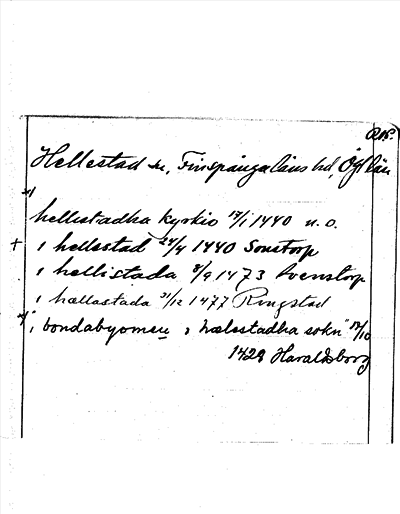 Hellestad sn, Finspångalāns hd, Ögl län
hellestadha kyrkio 17/1 1440 n. o.
+ i hellestad 24/4 1440 Sonstorp
i hellistada 8/9 1473 Svenstorp
i hællastada 31/12 1477 Ringstad
i bondabyomen i hælestadha sokn" 12/10
1428 Haraldsborg